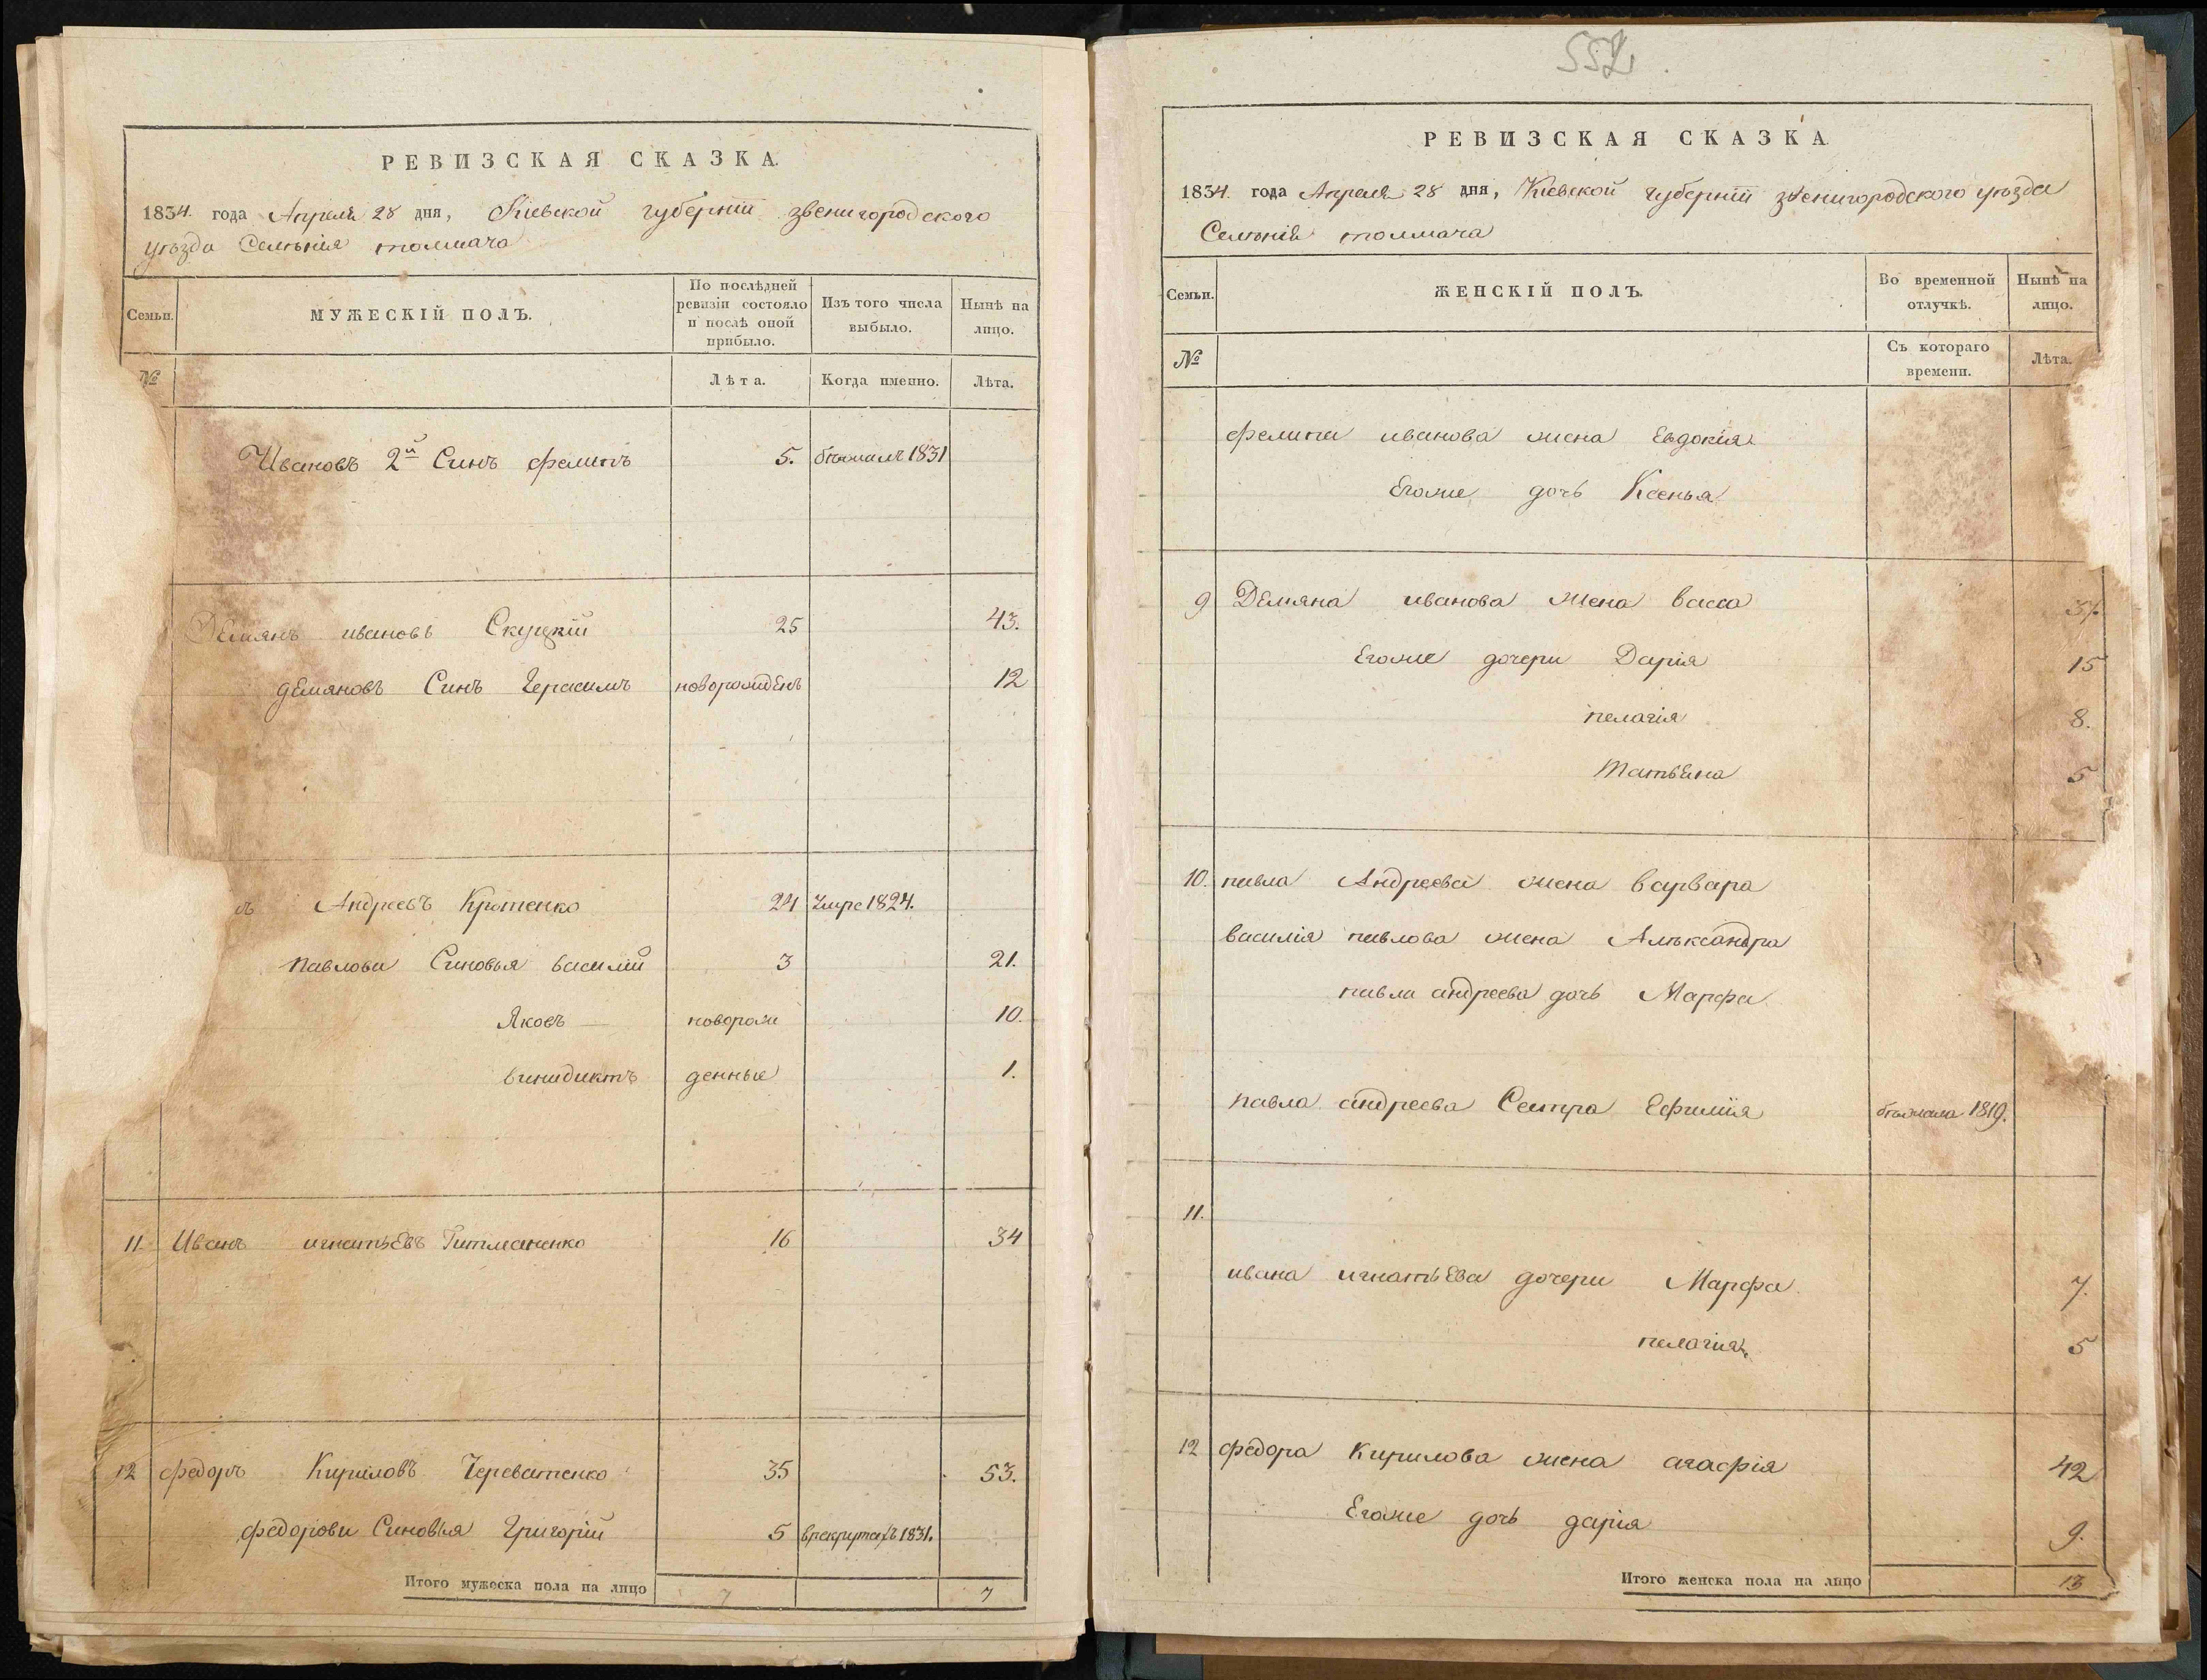 РЕВИЗСКАЯ СКАЗКА.
1834. года Апреля 28 дня, Кіевской губерніи звенигородского
уѣзда Селѣнія толмача
Семьи.
МУЖЕСКІЙ ПОЛЪ.
По послѣдней ревизіи состояло и послѣ оной прибыло.
Изъ того числа выбыло.
Нынѣ на лицо.
№
Лѣта.
Когда именно.
Лѣта.
Ивановъ 2й Синъ филипъ 5. бѣжалъ 1831
Демянъ ивановъ Скуцкій 25 43.
демяновъ Синъ Герасимъ новорожденъ 12
лъ Андреевъ Кротенко 24 Умре 1824.
Павлови Синовья василій 3 21.
Яковъ — новорож 10.
винидиктъ денные 1.
11. Иванъ игнатьевъ Гитманенко 16 34
12 федоръ Кириловъ Череватенко 35 53.
федорови Синовья Григорій 5 врекрутахъ 1831.
Итого мужеска пола на лицо 7 7
552
РЕВИЗСКАЯ СКАЗКА
1834. года Апреля 28 дня, Кіевской губерніи звенигородского уѣзда
Селѣнія толмача
Семьи.
ЖЕНСКІЙ ПОЛЪ.
Во временной отлучкѣ.
Нынѣ на лицо.
№
Съ котораго времени.
Лѣта.
филипа иванова жена Евдокія
Егоже дочь Ксенья
9 Демяна иванова жена васса 37.
Егоже дочери Дарія 15
пелагія 8.
татьяна 5
10. павла Андреева жена варвара
василія павлова жена Алѣксандра
павла андреева дочь Марфа
павла андреева Сестра Ефимія бѣжала 1819.
11.
ивана игнатьева дочери Марфа 7.
пелагія 5
12 федора Кирилова жена агафія 42
Егоже дочь дарія 9.
Итого женска пола на лицо 13